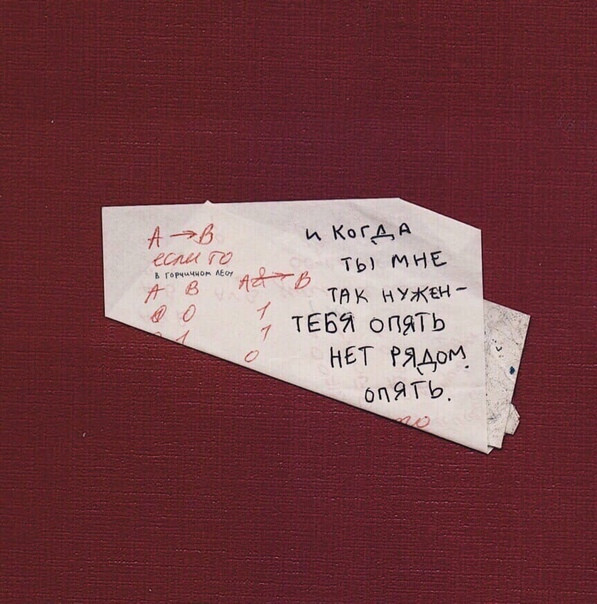 A → B
если то
в горчичном лесу
A B A → B
0 0 1
1 1
0
и когда
ты мне
так нужен –
тебя опять
нет рядом.
опять.
то